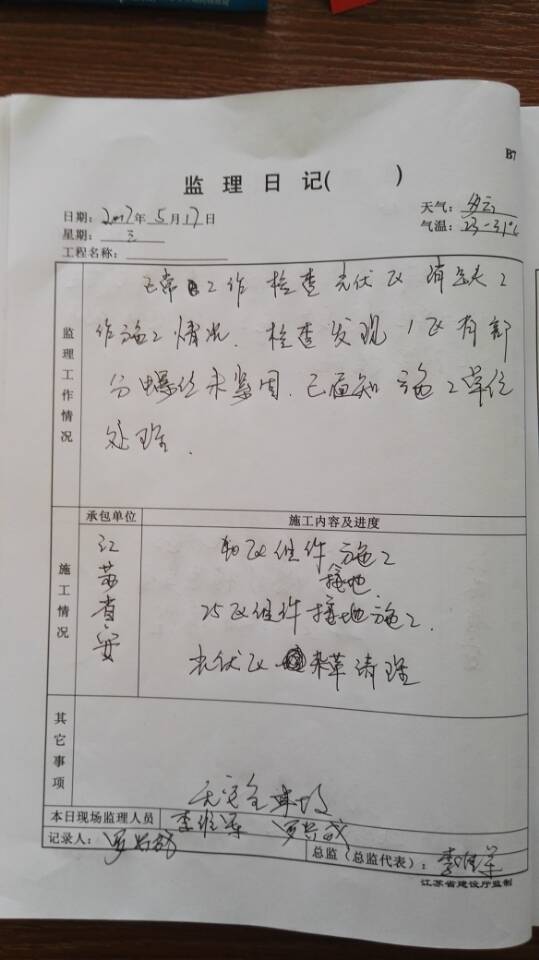 B7
监 理 日 记( )
日期: 2017 年 5 月 17 日
天气: 多云
星期: 三
气温: 23-31℃
工程名称:
监理工作情况
正常工作 检查光伏区消缺工
作施工情况. 检查发现 1区有部
分螺丝未紧固. 已通知施工单位
处理.
施工情况
承包单位
施工内容及进度
江苏省安
区组件施工
接地
25区组件接地施工.
光伏区杂草清理
其它事项
无安全事故
本日现场监理人员
记录人:
总监(总监代表):
江苏省建设厅监制